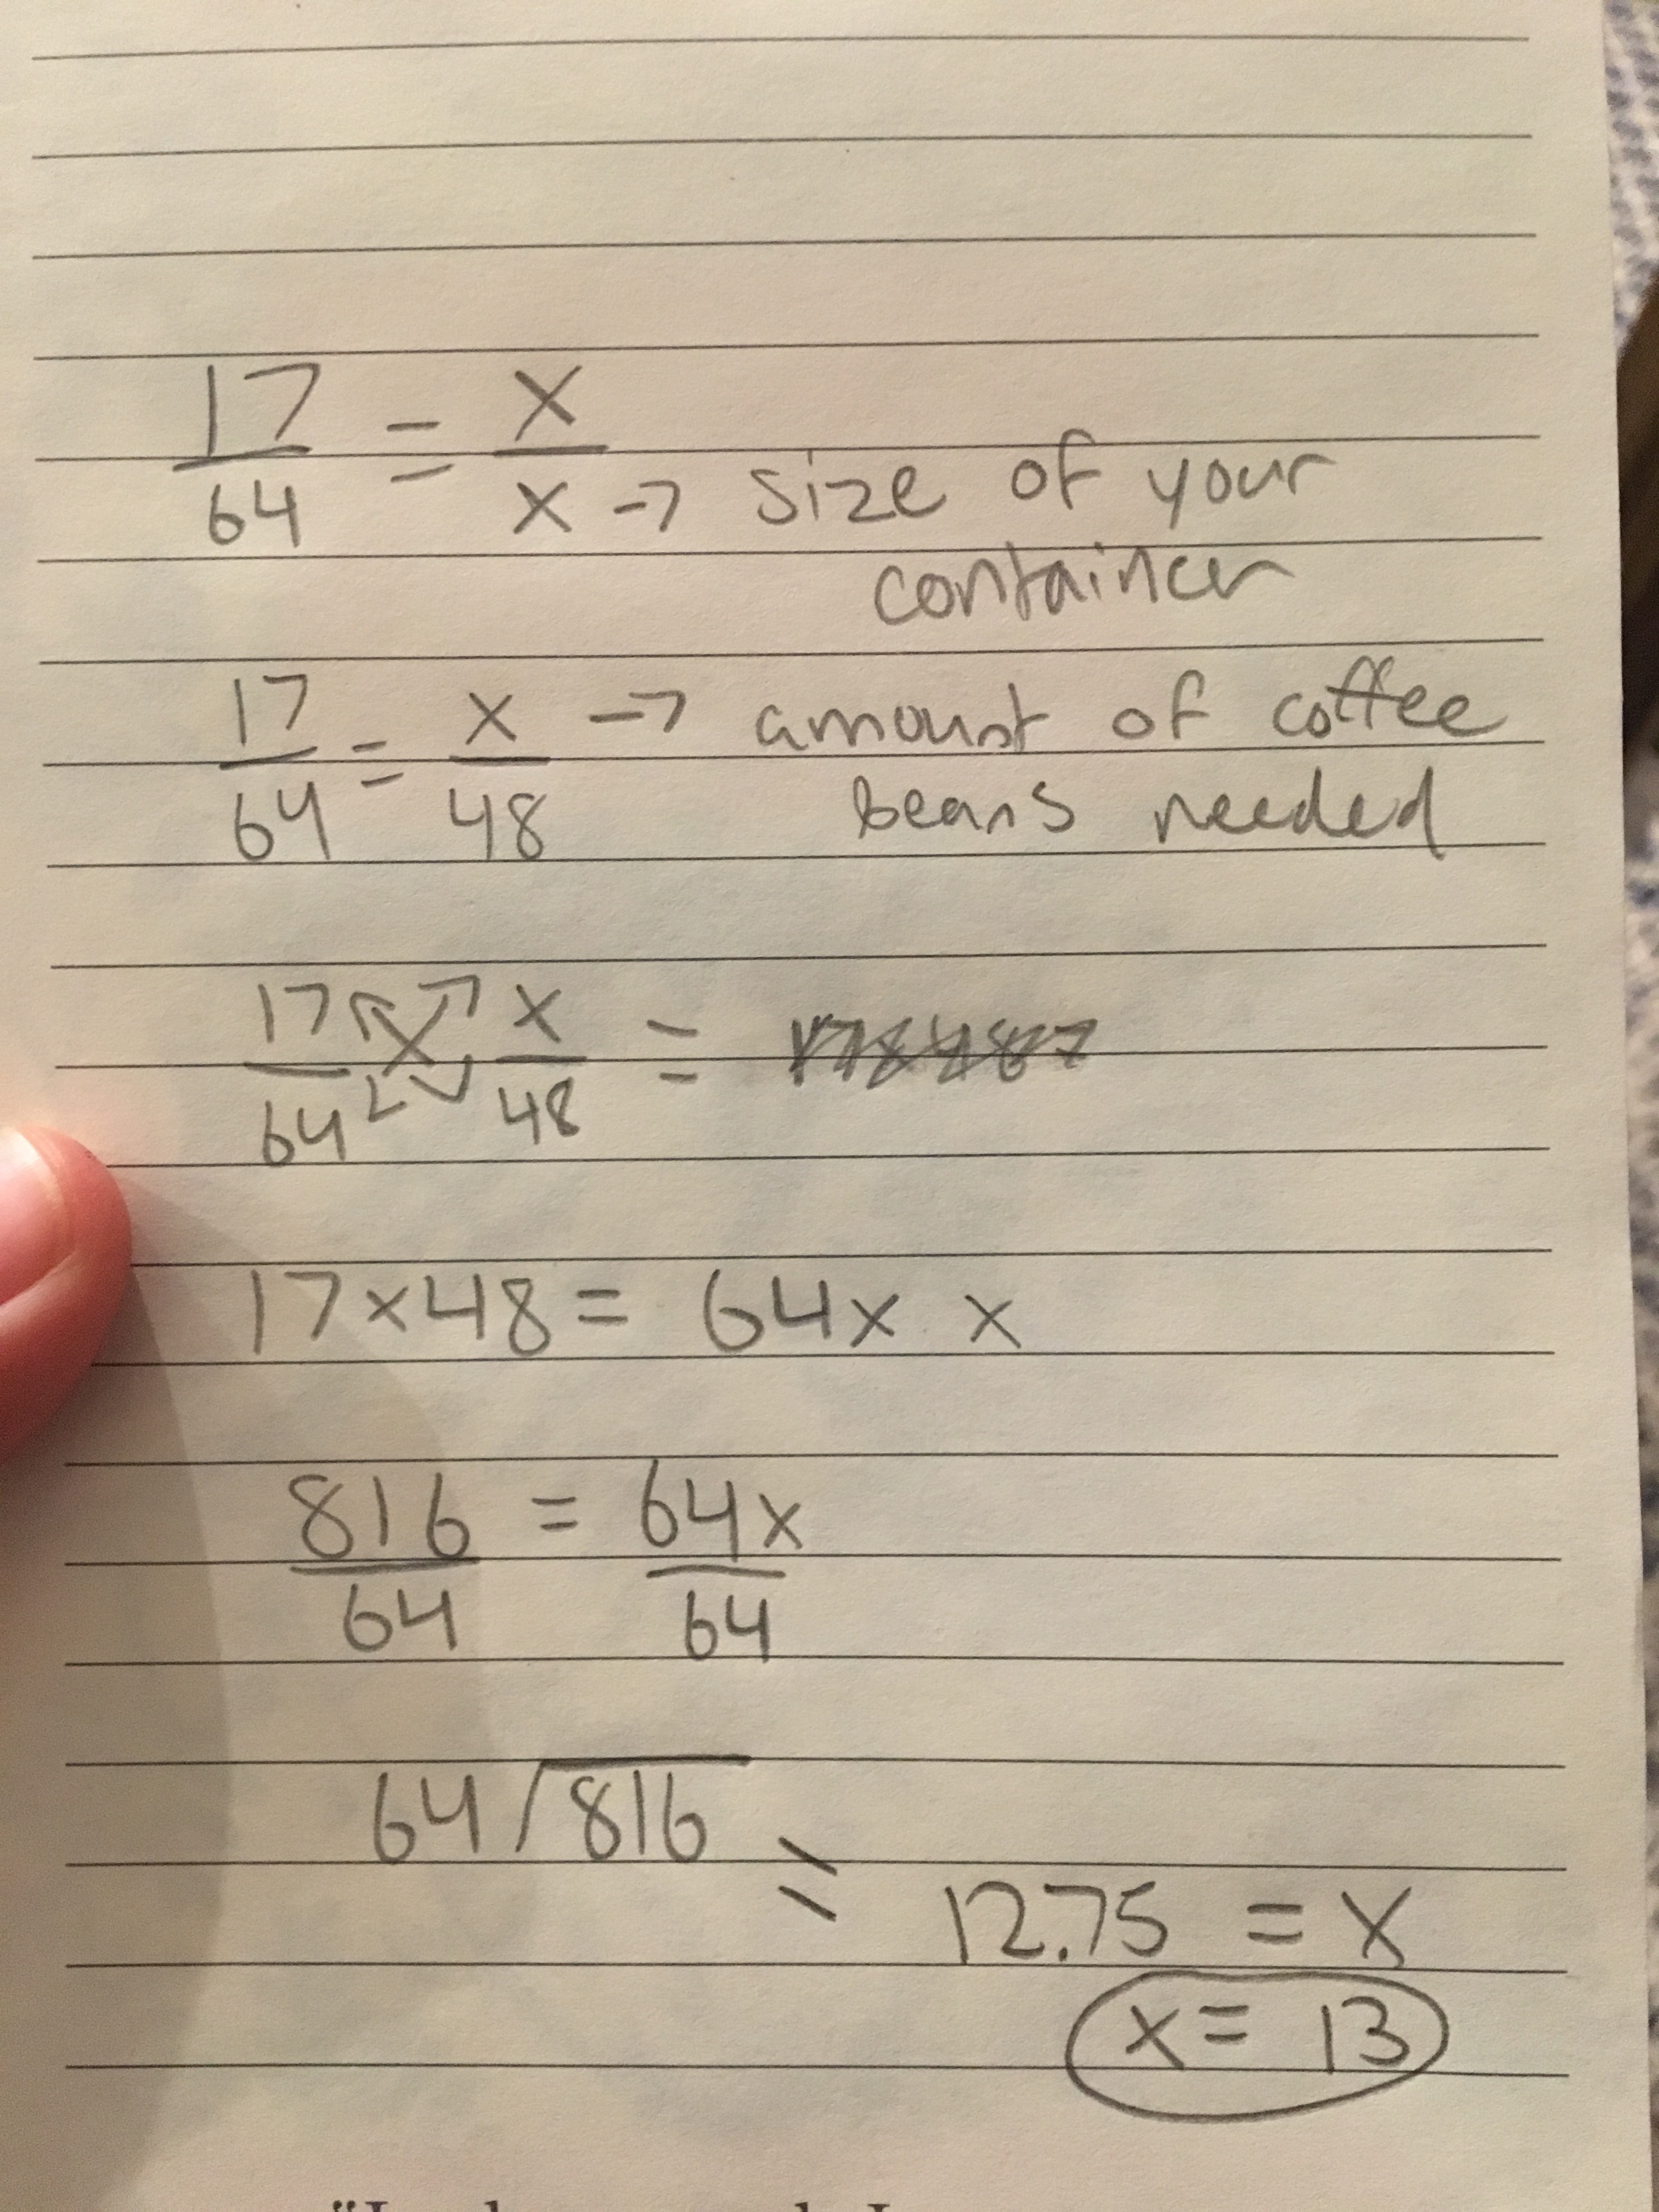 17/64 = x/x → size of your
container
17/64 = x/48 → amount of coffee
beans needed
17/64 x/48 =
17×48 = 64x x
816/64 = 64x/64
64 / 816 =
12.75 = x
x = 13